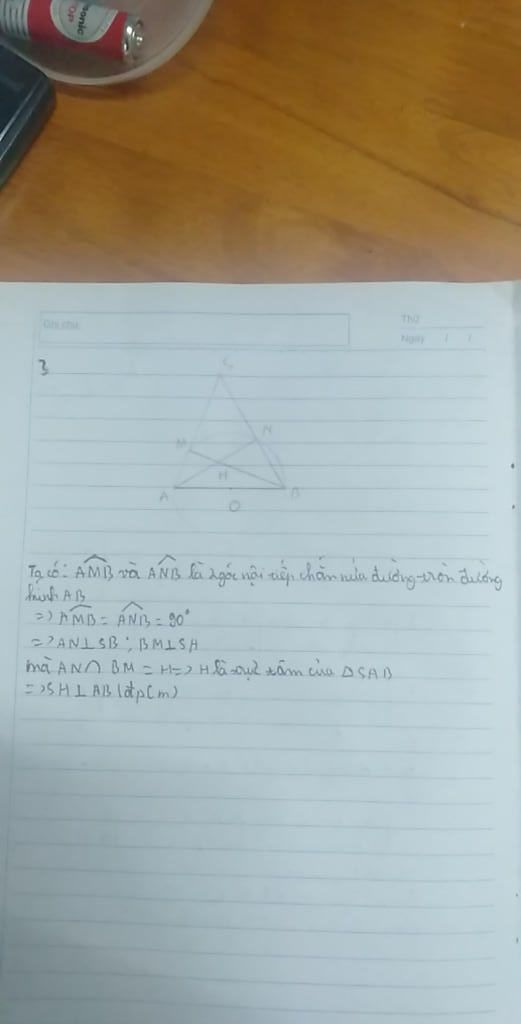 sonic
OP
Ghi chú:
Thứ
Ngày / /
3
S
M
N
H
A
B
O
Ta có: AMB và ANB là 2 góc nội tiếp chắn nửa đường tròn đường
kính AB
=> AMB = ANB = 90°
=> AN⊥SB; BM⊥SA
mà AN∩BM = H => H là trực tâm của △SAB
=> SH⊥AB (đpcm)